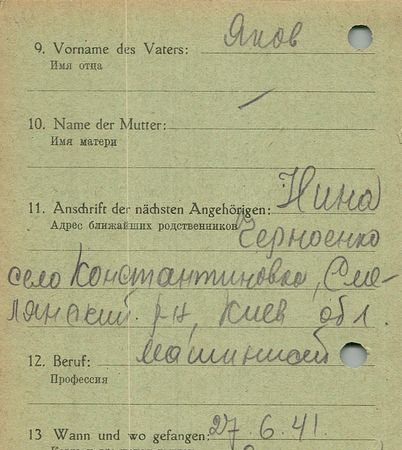 9. Vorname des Vaters: Яков
Имя отца
10. Name der Mutter: —
Имя матери
11. Anschrift der nächsten Angehörigen: Нина
Адрес ближайших родственников Черноенко
село Константиновка, Сме-
лянский р-н, Киев обл.
12. Beruf: машинист
Профессия
13 Wann und wo gefangen: 27.6.41.